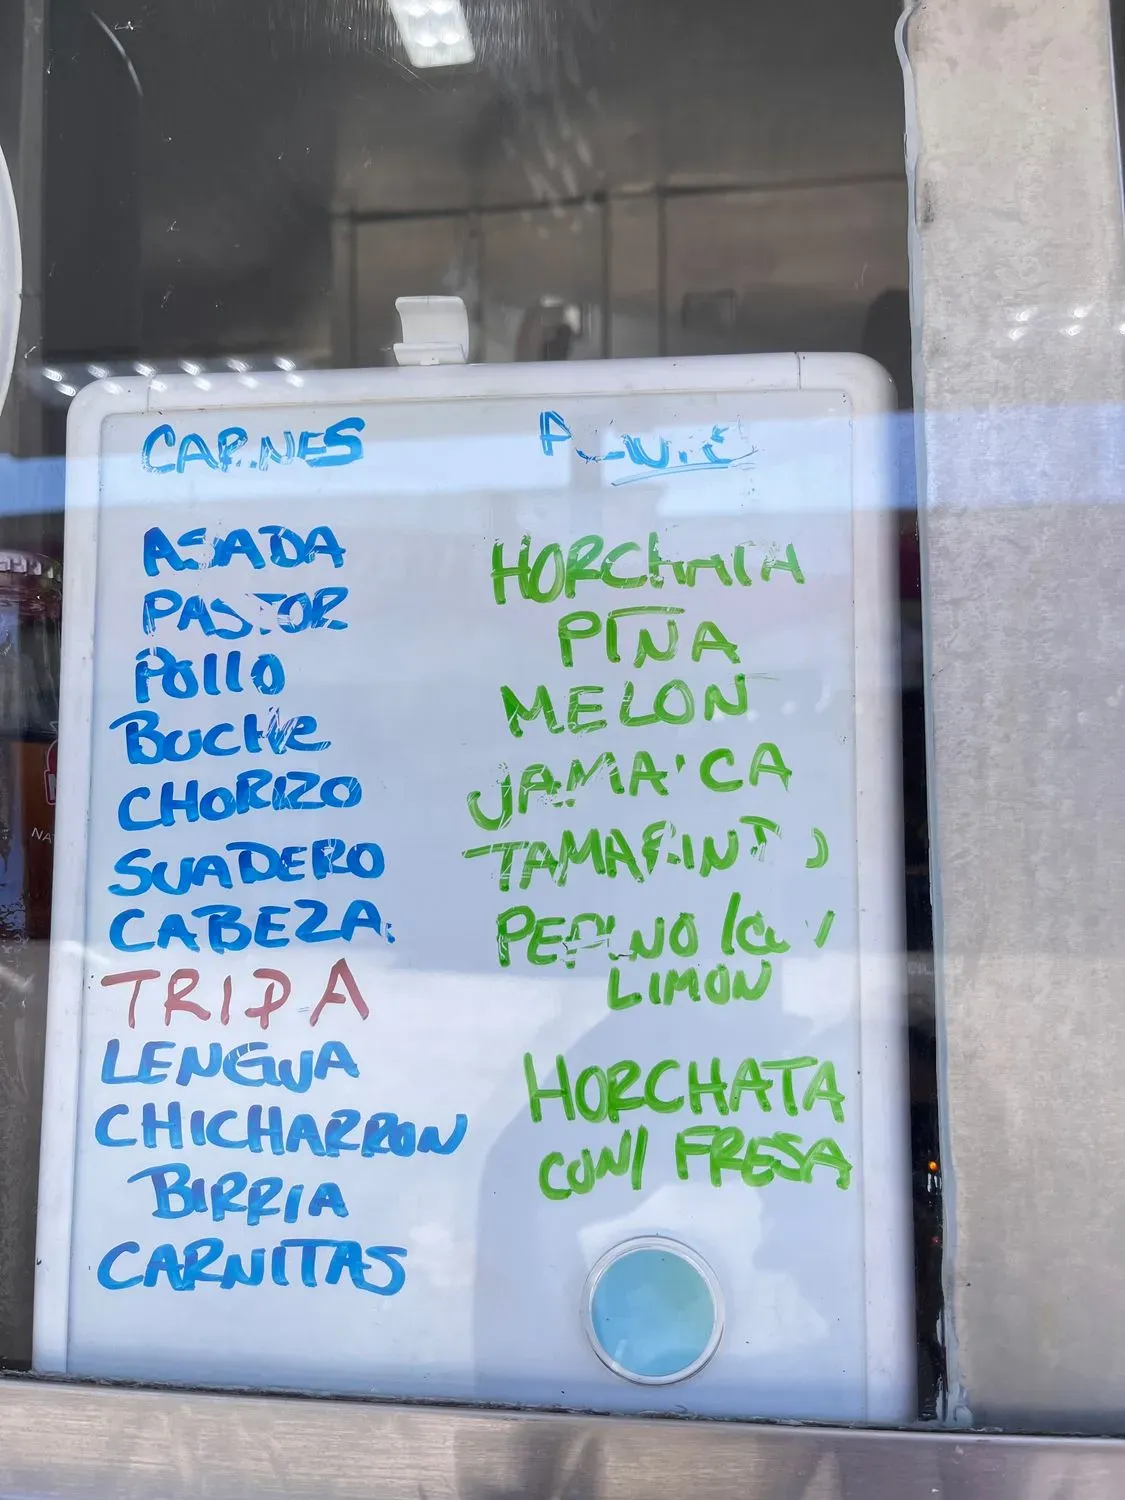 CARNES
ASADA
PASTOR
POLLO
BUCHE
CHORIZO
SUADERO
CABEZA
TRIPA
LENGUA
CHICHARRON
BIRRIA
CARNITAS
HORCHATA
PIÑA
MELON
JAMAICA
TAMARINDO
PEPINO
LIMON
HORCHATA
CON/ FRESA